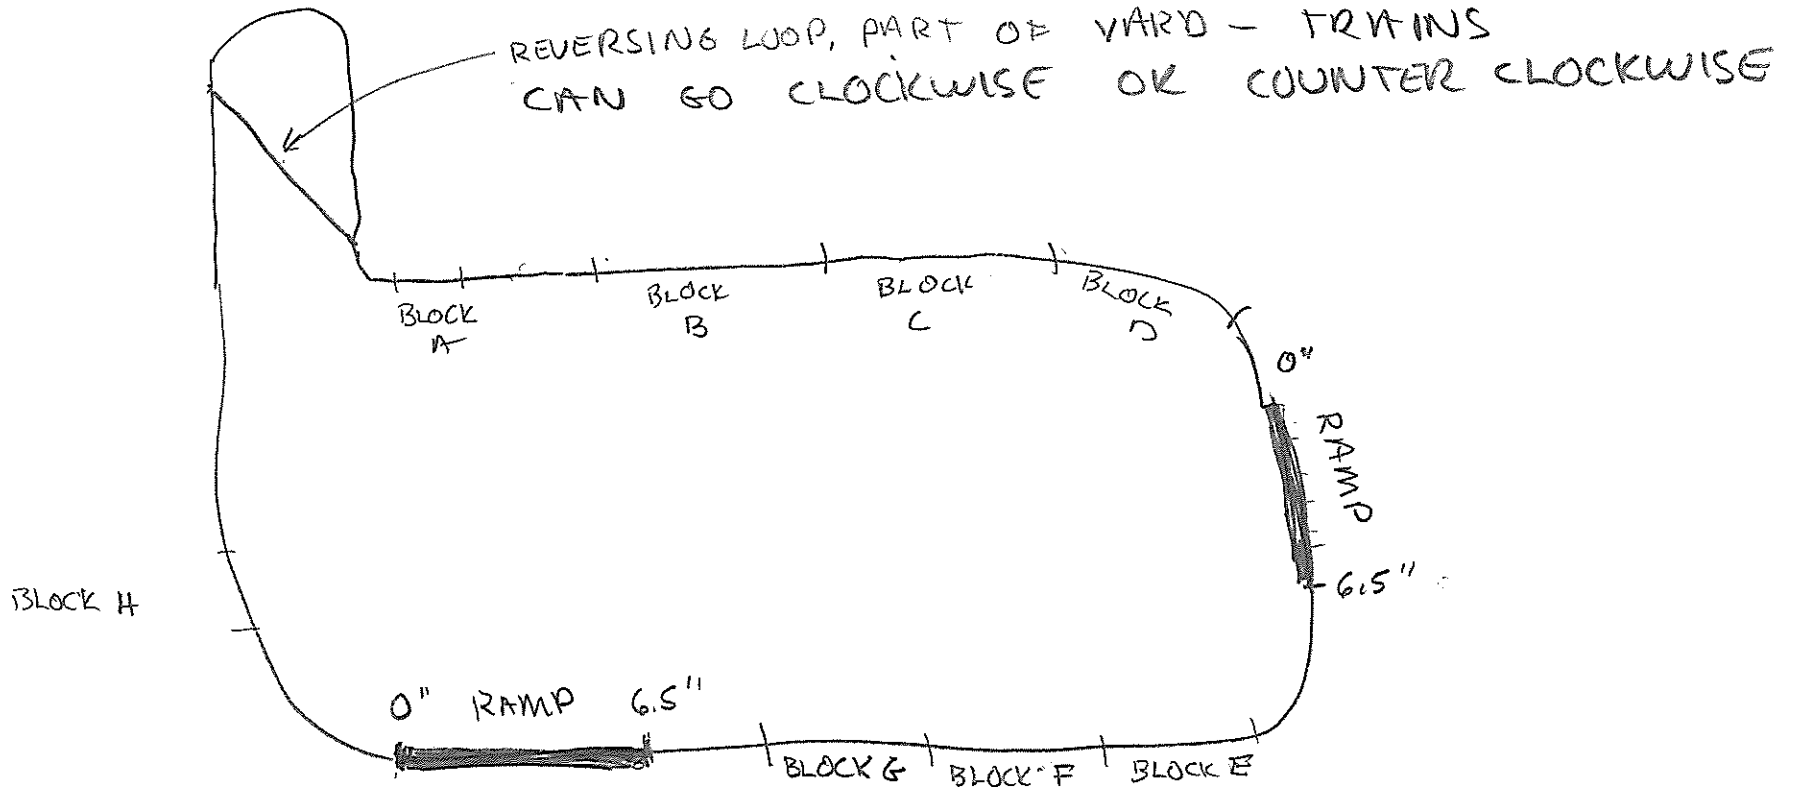 REVERSING LOOP, PART OF YARD - TRAINS
CAN GO CLOCKWISE OR COUNTER CLOCKWISE
BLOCK
A
BLOCK
B
BLOCK
C
BLOCK
D
0"
RAMP
6.5"
BLOCK H
0" RAMP 6.5"
BLOCK G
BLOCK F
BLOCK E